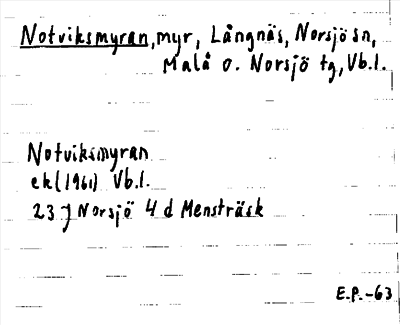 Notviksmyran, myr, Långnäs, Norsjö sn,
Malå o. Norsjö tg, Vb.l.
Notviksmyran
ek (1961) Vb.l.
23 J Norsjö 4 d Mensträsk
E.P.-63